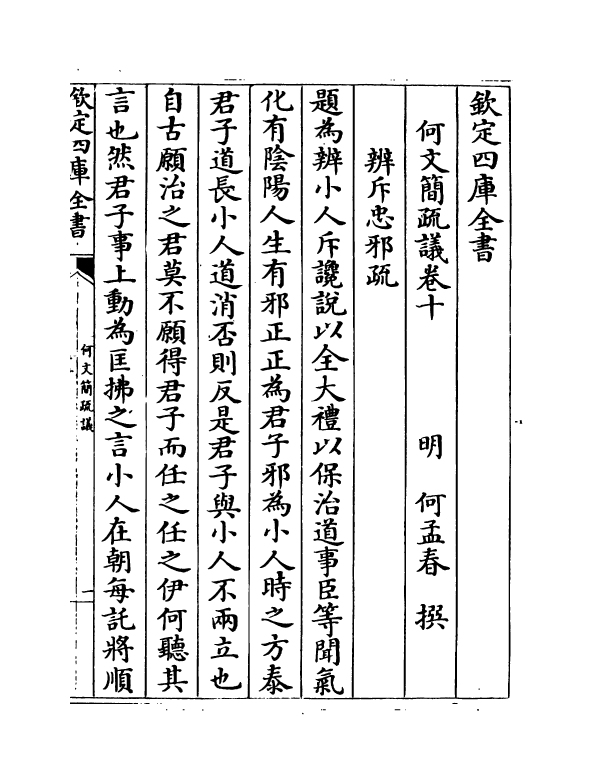 欽定四庫全書
何文簡疏議卷十　明　何孟春　撰
辨斥忠邪疏
題為辨小人斥讒說以全大禮以保治道事臣等聞氣
化有陰陽人生有邪正正為君子邪為小人時之方泰
君子道長小人道消否則反是君子與小人不兩立也
自古願治之君莫不願得君子而任之任之伊何聽其
言也然君子事上動為匡拂之言小人在朝每託將順
欽定四庫全書
何文簡疏議
一